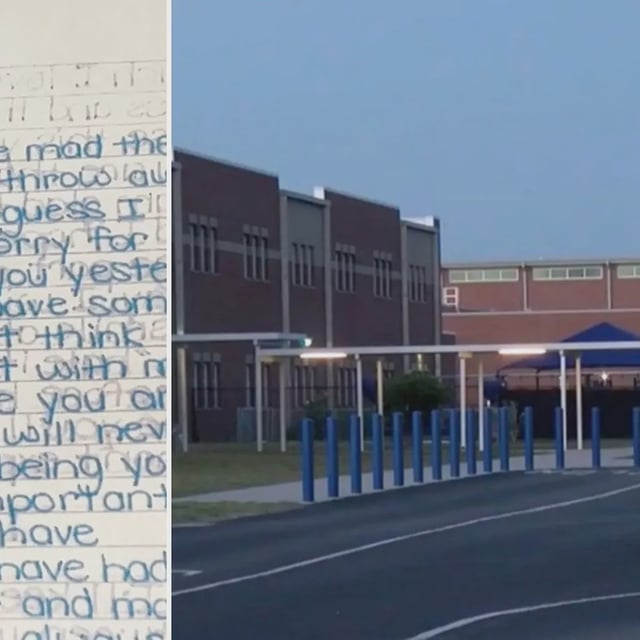 mad the
throw aw
guess I
erry for
you yeste
ave som
think
t with m
e you ar
will nev
being yo
portant
have
have had
and ma